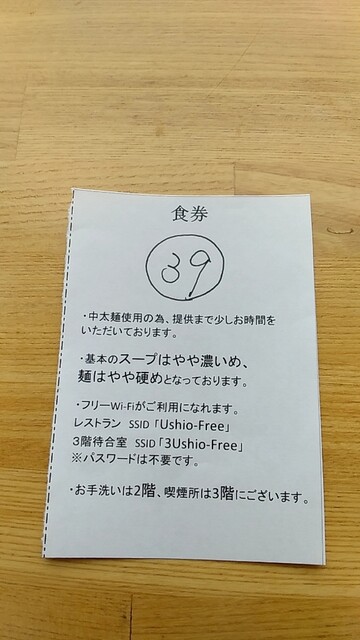 食券
39
・中太麺使用の為、提供まで少しお時間を
いただいております。
・基本のスープはやや濃いめ、
麺はやや硬めとなっております。
・フリーWi-Fiがご利用になれます。
レストラン SSID「Ushio-Free」
3階待合室 SSID「3Ushio-Free」
※パスワードは不要です。
・お手洗いは2階、喫煙所は3階にございます。